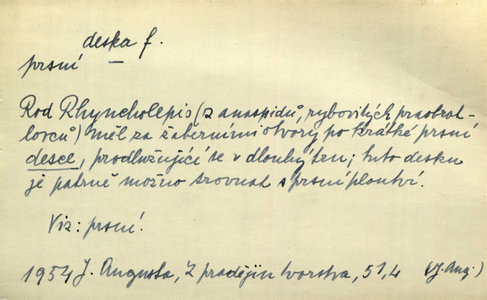 deska f.
prsní
Rod Rhyncholepis (z anaspidů, rybovitých praobrat-
lovců) měl za žaberními otvory po krátké prsní
desce, prodlužující se v dlouhý trn; tuto desku
je patrně možno srovnat s prsní ploutví.
Viz: prsní.
1954 J. Augusta, Z pradějin tvorstva, 51,4 (J. Aug.)